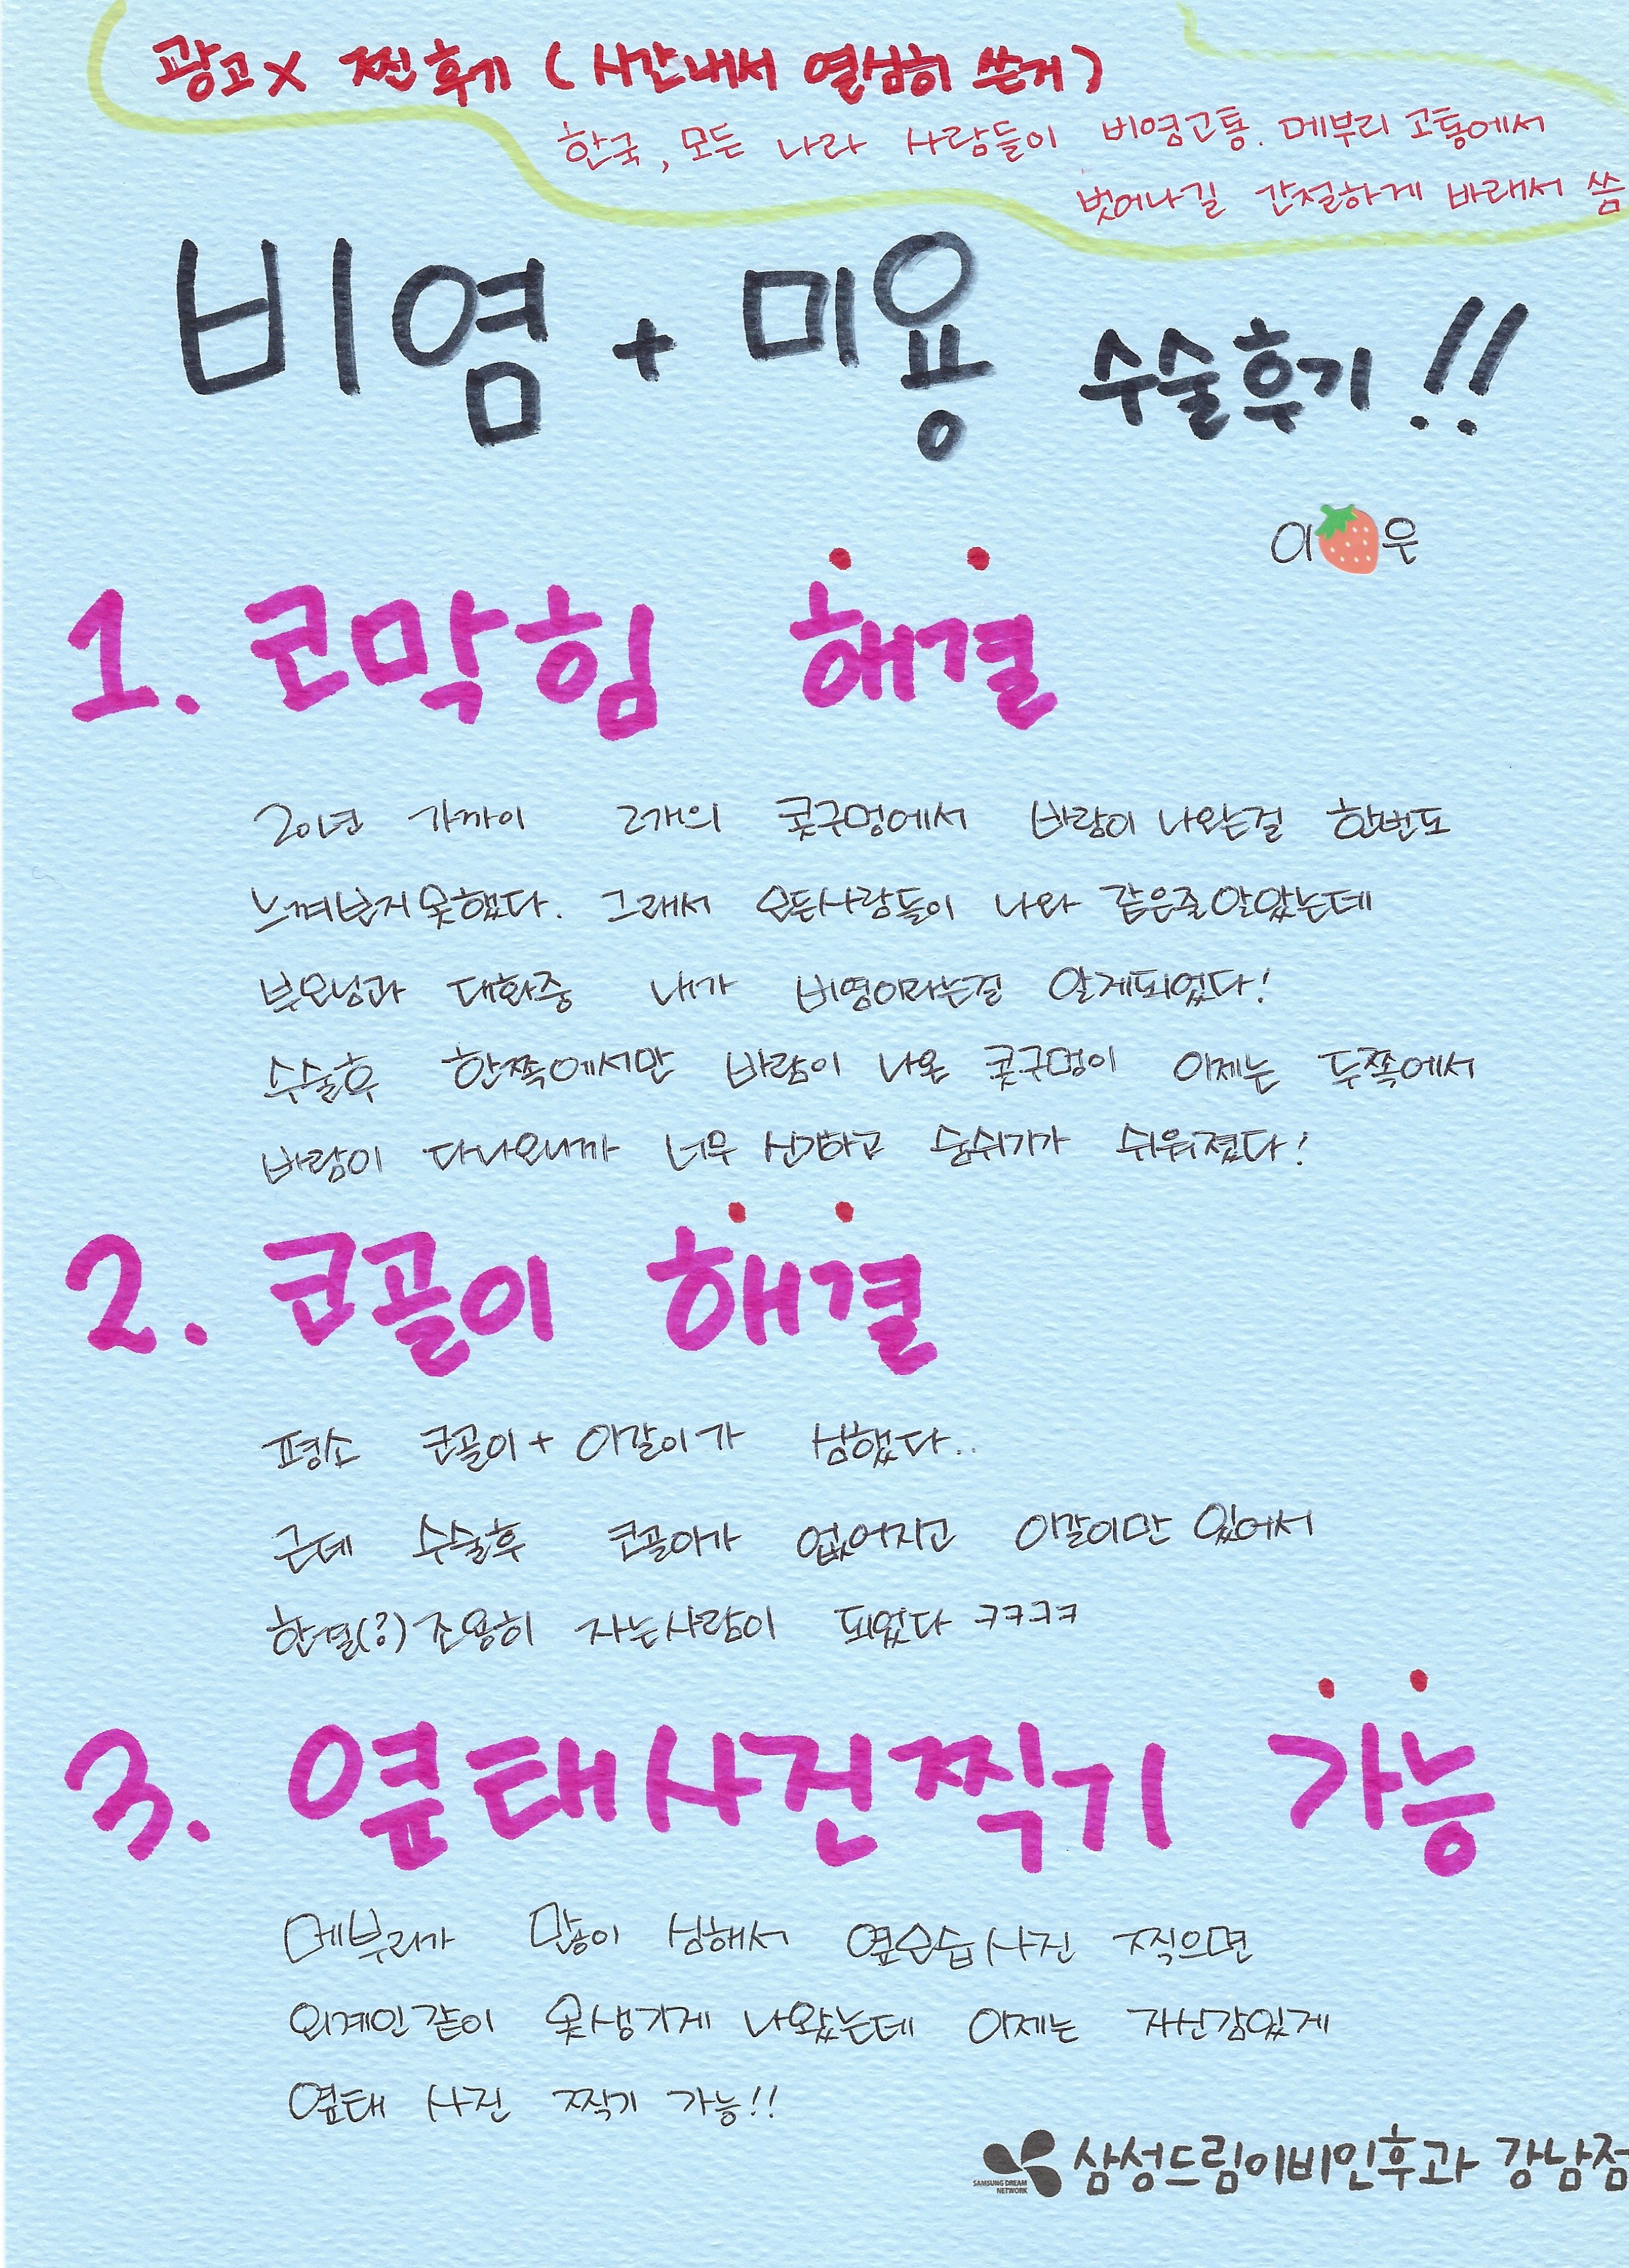 광고X 찐후기 (시간내서 열심히 쓴거)
한국, 모든 나라 사람들이 비염고통. 메부리 고통에서
벗어나길 간절하게 바래서 씀
비염 + 미용 수술후기!!
이🍓우
1. 코막힘 해결
20년 가까이 2개의 콧구멍에서 바람이 나오는걸 한번도
느껴보지못했다. 그래서 모든사람들이 나와 같은줄알았는데
부모님과 대화중 내가 비염이라는걸 알게되었다!
수술후 한쪽에서만 바람이 나온 콧구멍이 이제는 두쪽에서
바람이 다나오니까 너무 신기하고 숨쉬기가 쉬워졌다!
2. 코골이 해결
평소 코골이+ 이갈이가 심했다..
근데 수술후 코골이가 없어지고 이갈이만 있어서
한결(?) 조용히 자는사람이 되었다 ㅋㅋㅋㅋ
3. 옆태사진찍기 가능
메부리가 많이 심해서 옆모습사진 찍으면
외계인같이 못생기게 나왔는데 이제는 자신감있게
옆태 사진 찍기 가능!!
SAMSUNG DREAM NETWORK 삼성드림이비인후과 강남점